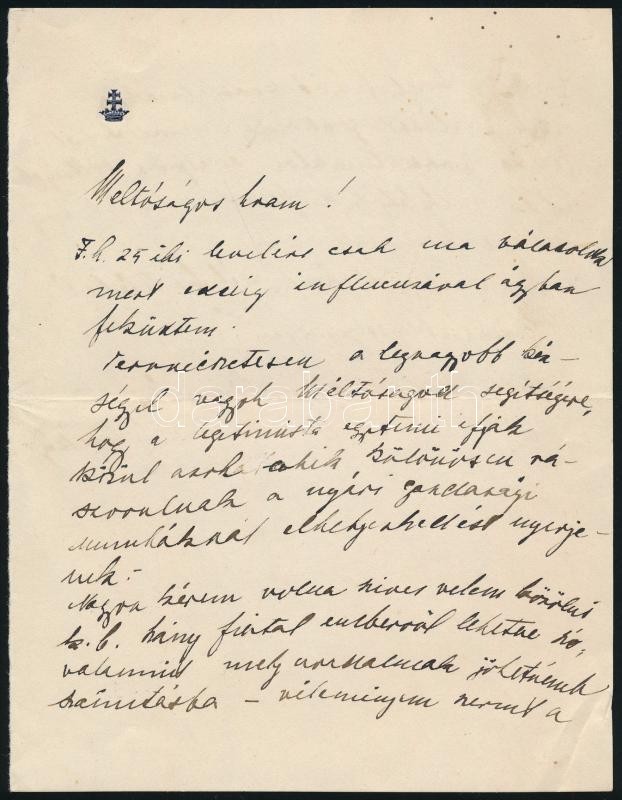 Méltóságos Uram!
F. h. 25 iki levelére csak ma válaszolok
mert eddig influenzával ágyban
feküdtem.
Természetesen a legnagyobb kész-
séggel vagyok Méltóságod segítségére,
hogy a legitimista egyetemi ifjak
közül azok akik különösen rá-
szorulnak a nyári gazdasági
munkáknál elhelyezkedést nyerje-
nek.-
Nagyon kérem volna szives velem közölni
k. b. hány fiatal emberről lehetne szó,
valamint mely uradalmak jöhetnének
számitásba – véleményem szerint a
darabanth